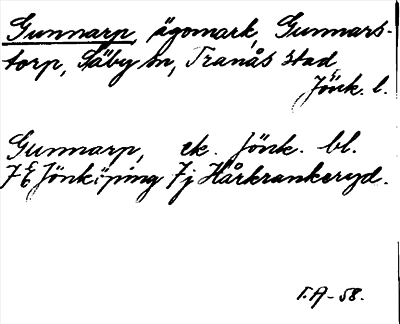 Gunnarp, ägomark, Gunnars-
torp, Säby sn, Tranås stad
Jönk. l.
Gunnarp, ek. Jönk. bl.
7E Jönköping 7j Hårkrankeryd.
T.A-58.